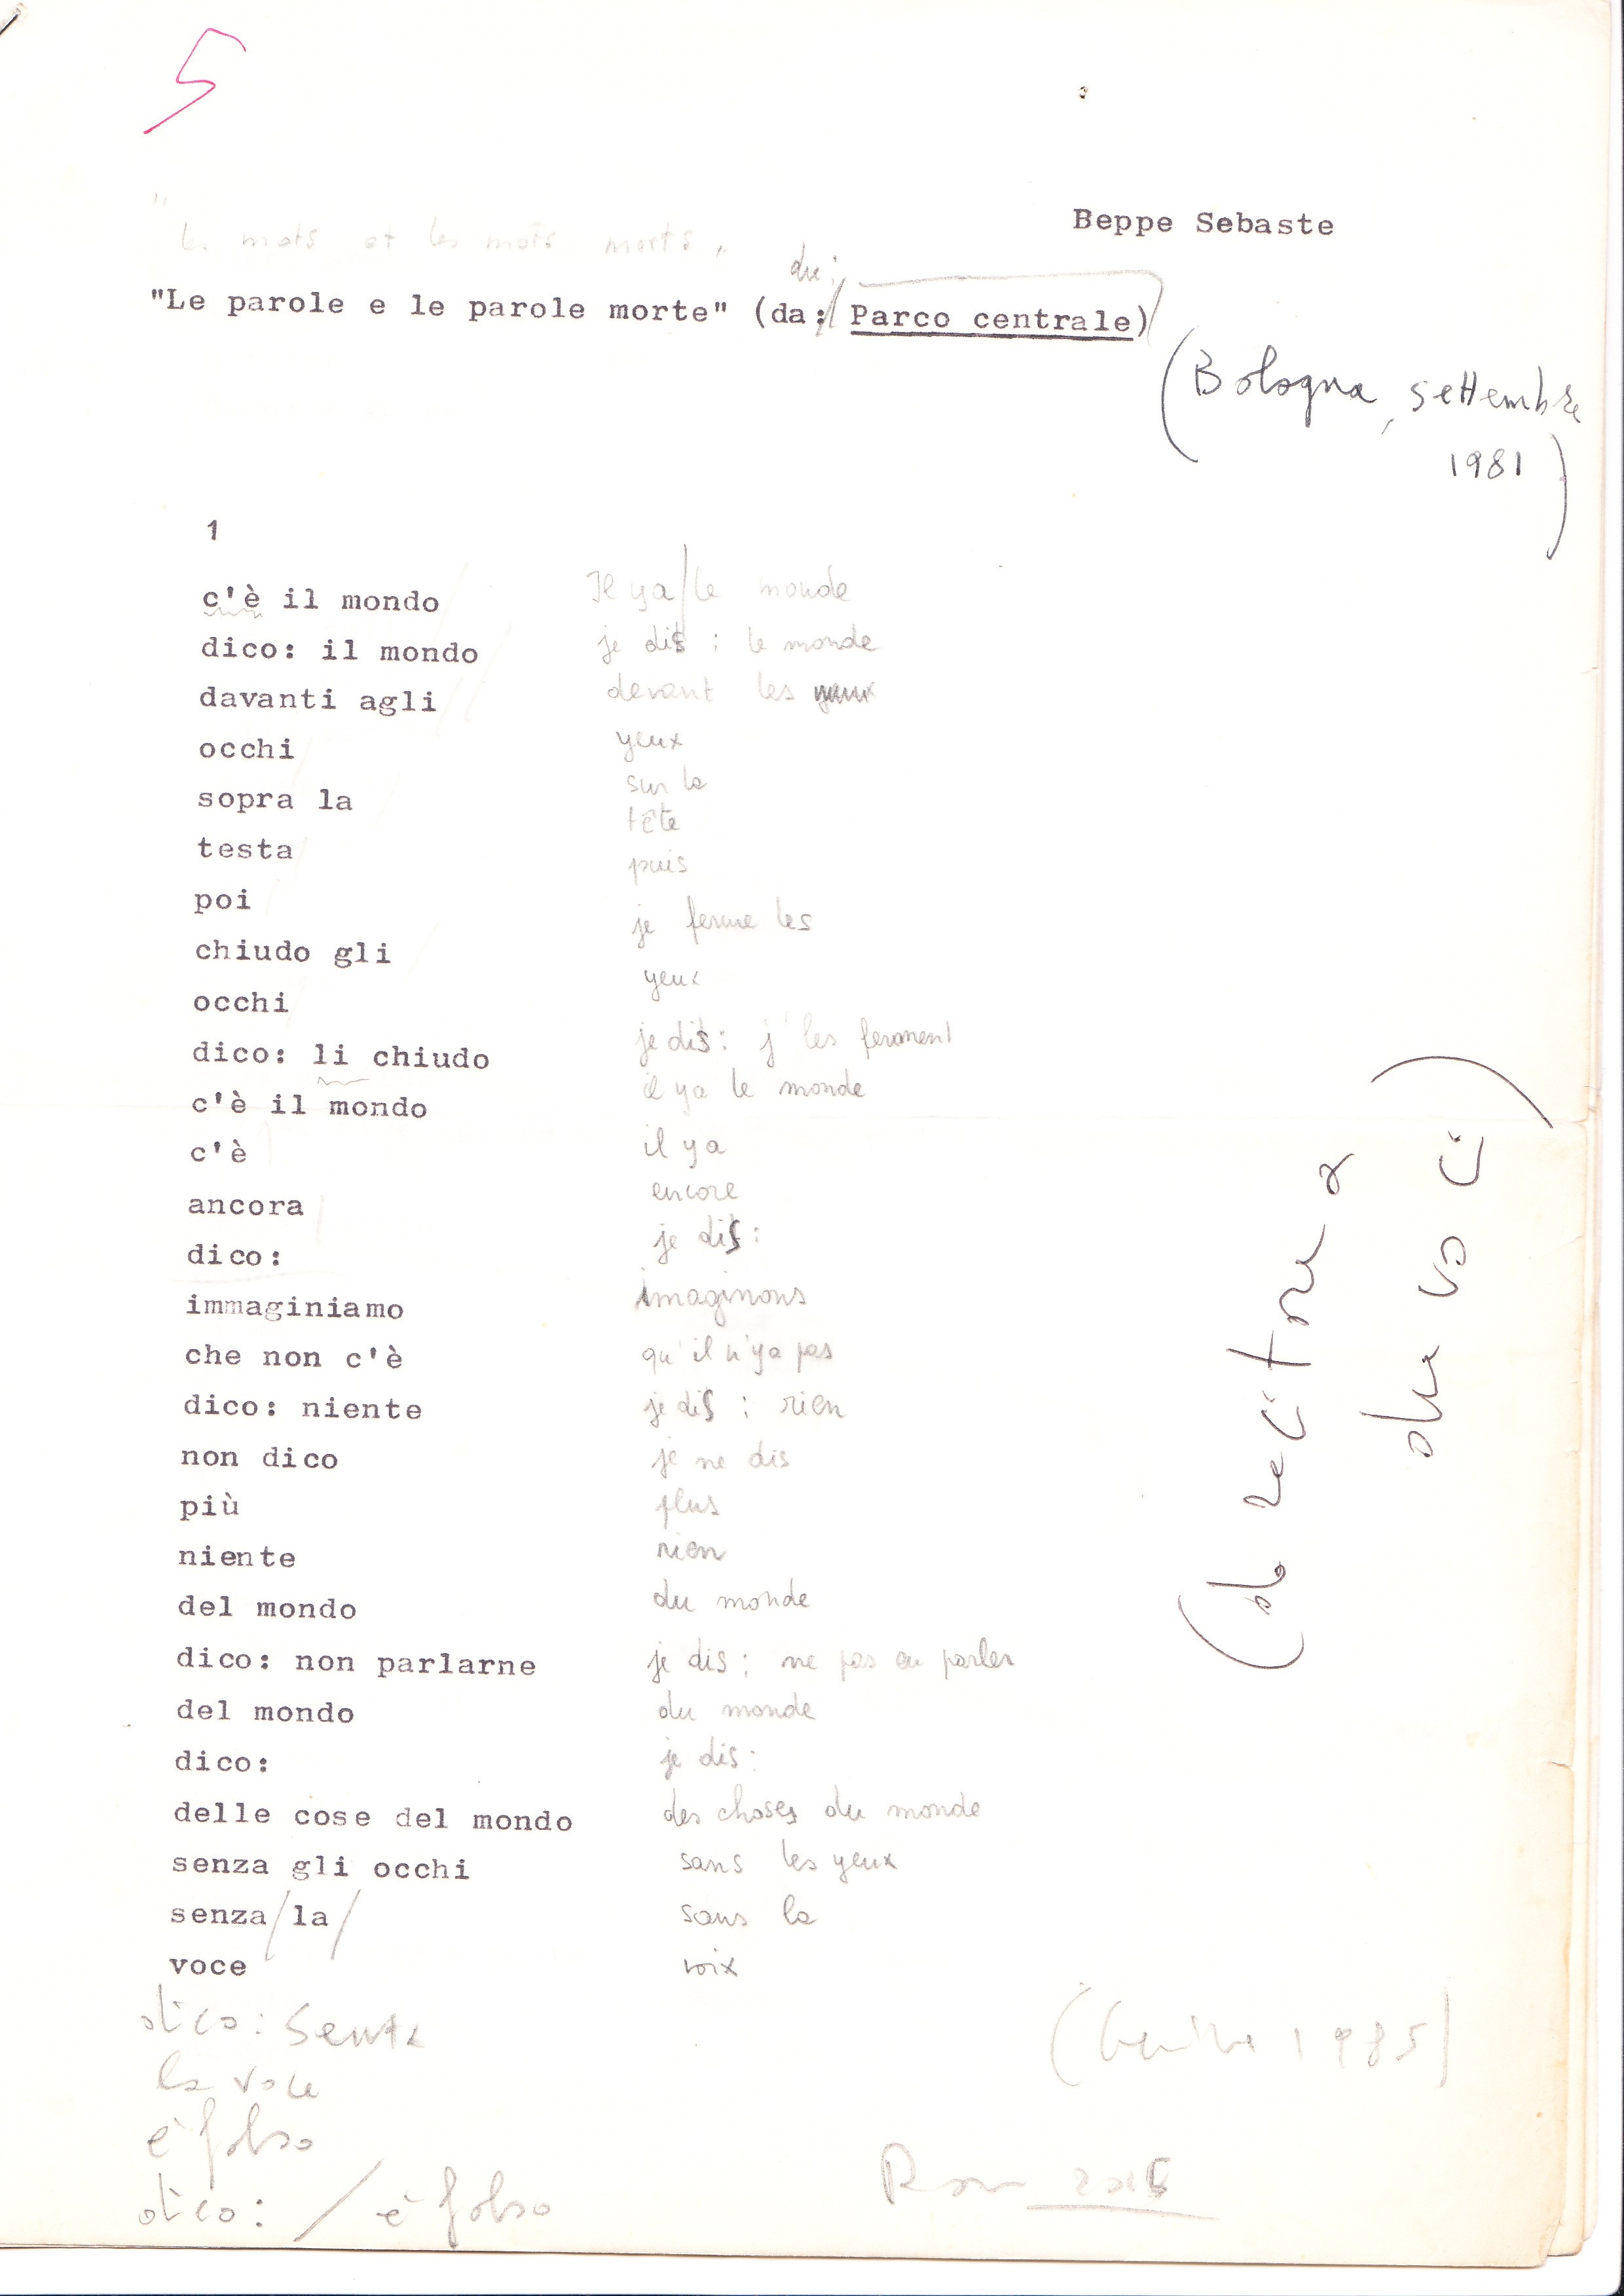 5
Beppe Sebaste
"les mots et les mots morts"
du:
"Le parole e le parole morte" (da: Parco centrale)
(Bologna, settembre
1981)
1
c'è il mondo Il y a/le monde
dico: il mondo je dis : le monde
davanti agli devant les
occhi yeux
sopra la sur la
testa tête
poi puis
chiudo gli je ferme les
occhi yeux
dico: li chiudo je dis: j' les ferment
c'è il mondo il y a le monde
c'è il y a
ancora encore
dico: je dis:
immaginiamo imaginons
che non c'è qu'il n'y a pas
dico: niente je dis : rien
non dico je ne dis
più plus
niente rien
del mondo du monde
dico: non parlarne je dis : ne pas en parler
del mondo du monde
dico: je dis:
delle cose del mondo des choses du monde
senza gli occhi sans les yeux
senza/la/ sans la
voce voix
(da recitare a
due voci)
dico: senza
la voce
è falso
dico: / è falso
1985)